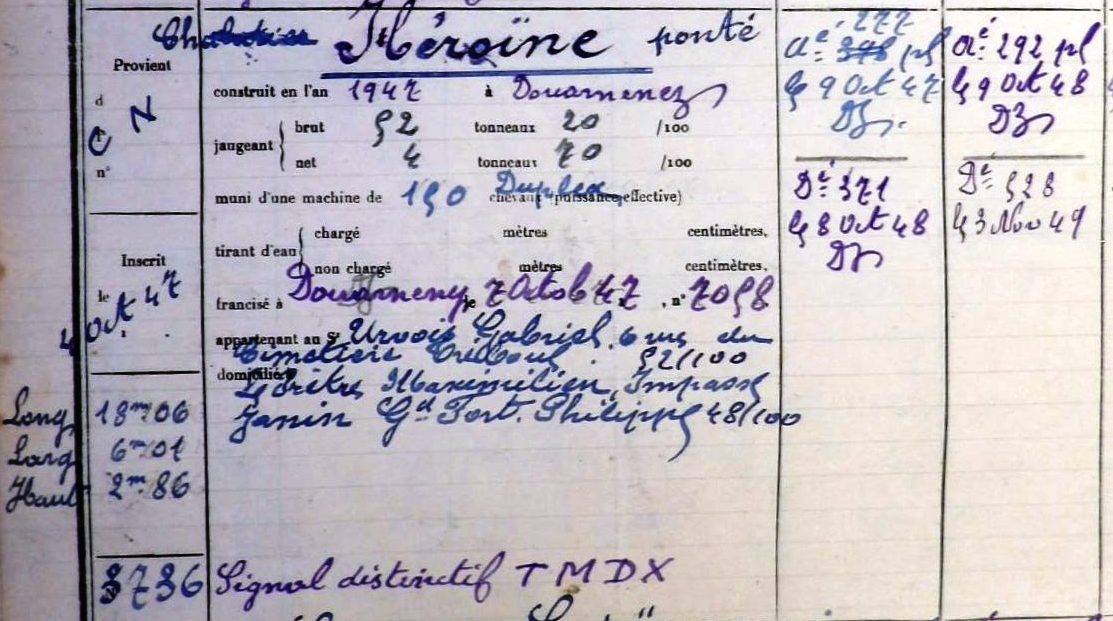 Héroïne ponté
Provient
d
CN
n°
construit en l'an 1947 à Douarnenez
jaugeant { brut 52 tonneaux 20 /100
net 4 tonneaux 70 /100
muni d'une machine de 150 Duplex chevaux (puissance effective)
tirant d'eau { chargé mètres centimètres,
non chargé mètres centimètres,
Inscrit
le 4 Oct 47
francisé à Douarnenez le 7 Octob 47, n° 7058
appartenant au Sr Urvois Gabriel, 6 rue du
Cimetière Tréboul. 52/100
domicilié
Leprêtre Maximilien, Impasse
Janin Gd Fort. Philippe 48/100
Long 18m06
Larg 6m01
Haut 2m86
3736 Signal distinctif TMDX
Aé 277
pl
le 9 Oct 47
DZ
Dé 371
le 8 Oct 48
DZ
Aé 292 pl
le 9 Oct 48
DZ
Dé 528
le 3 Nov 49